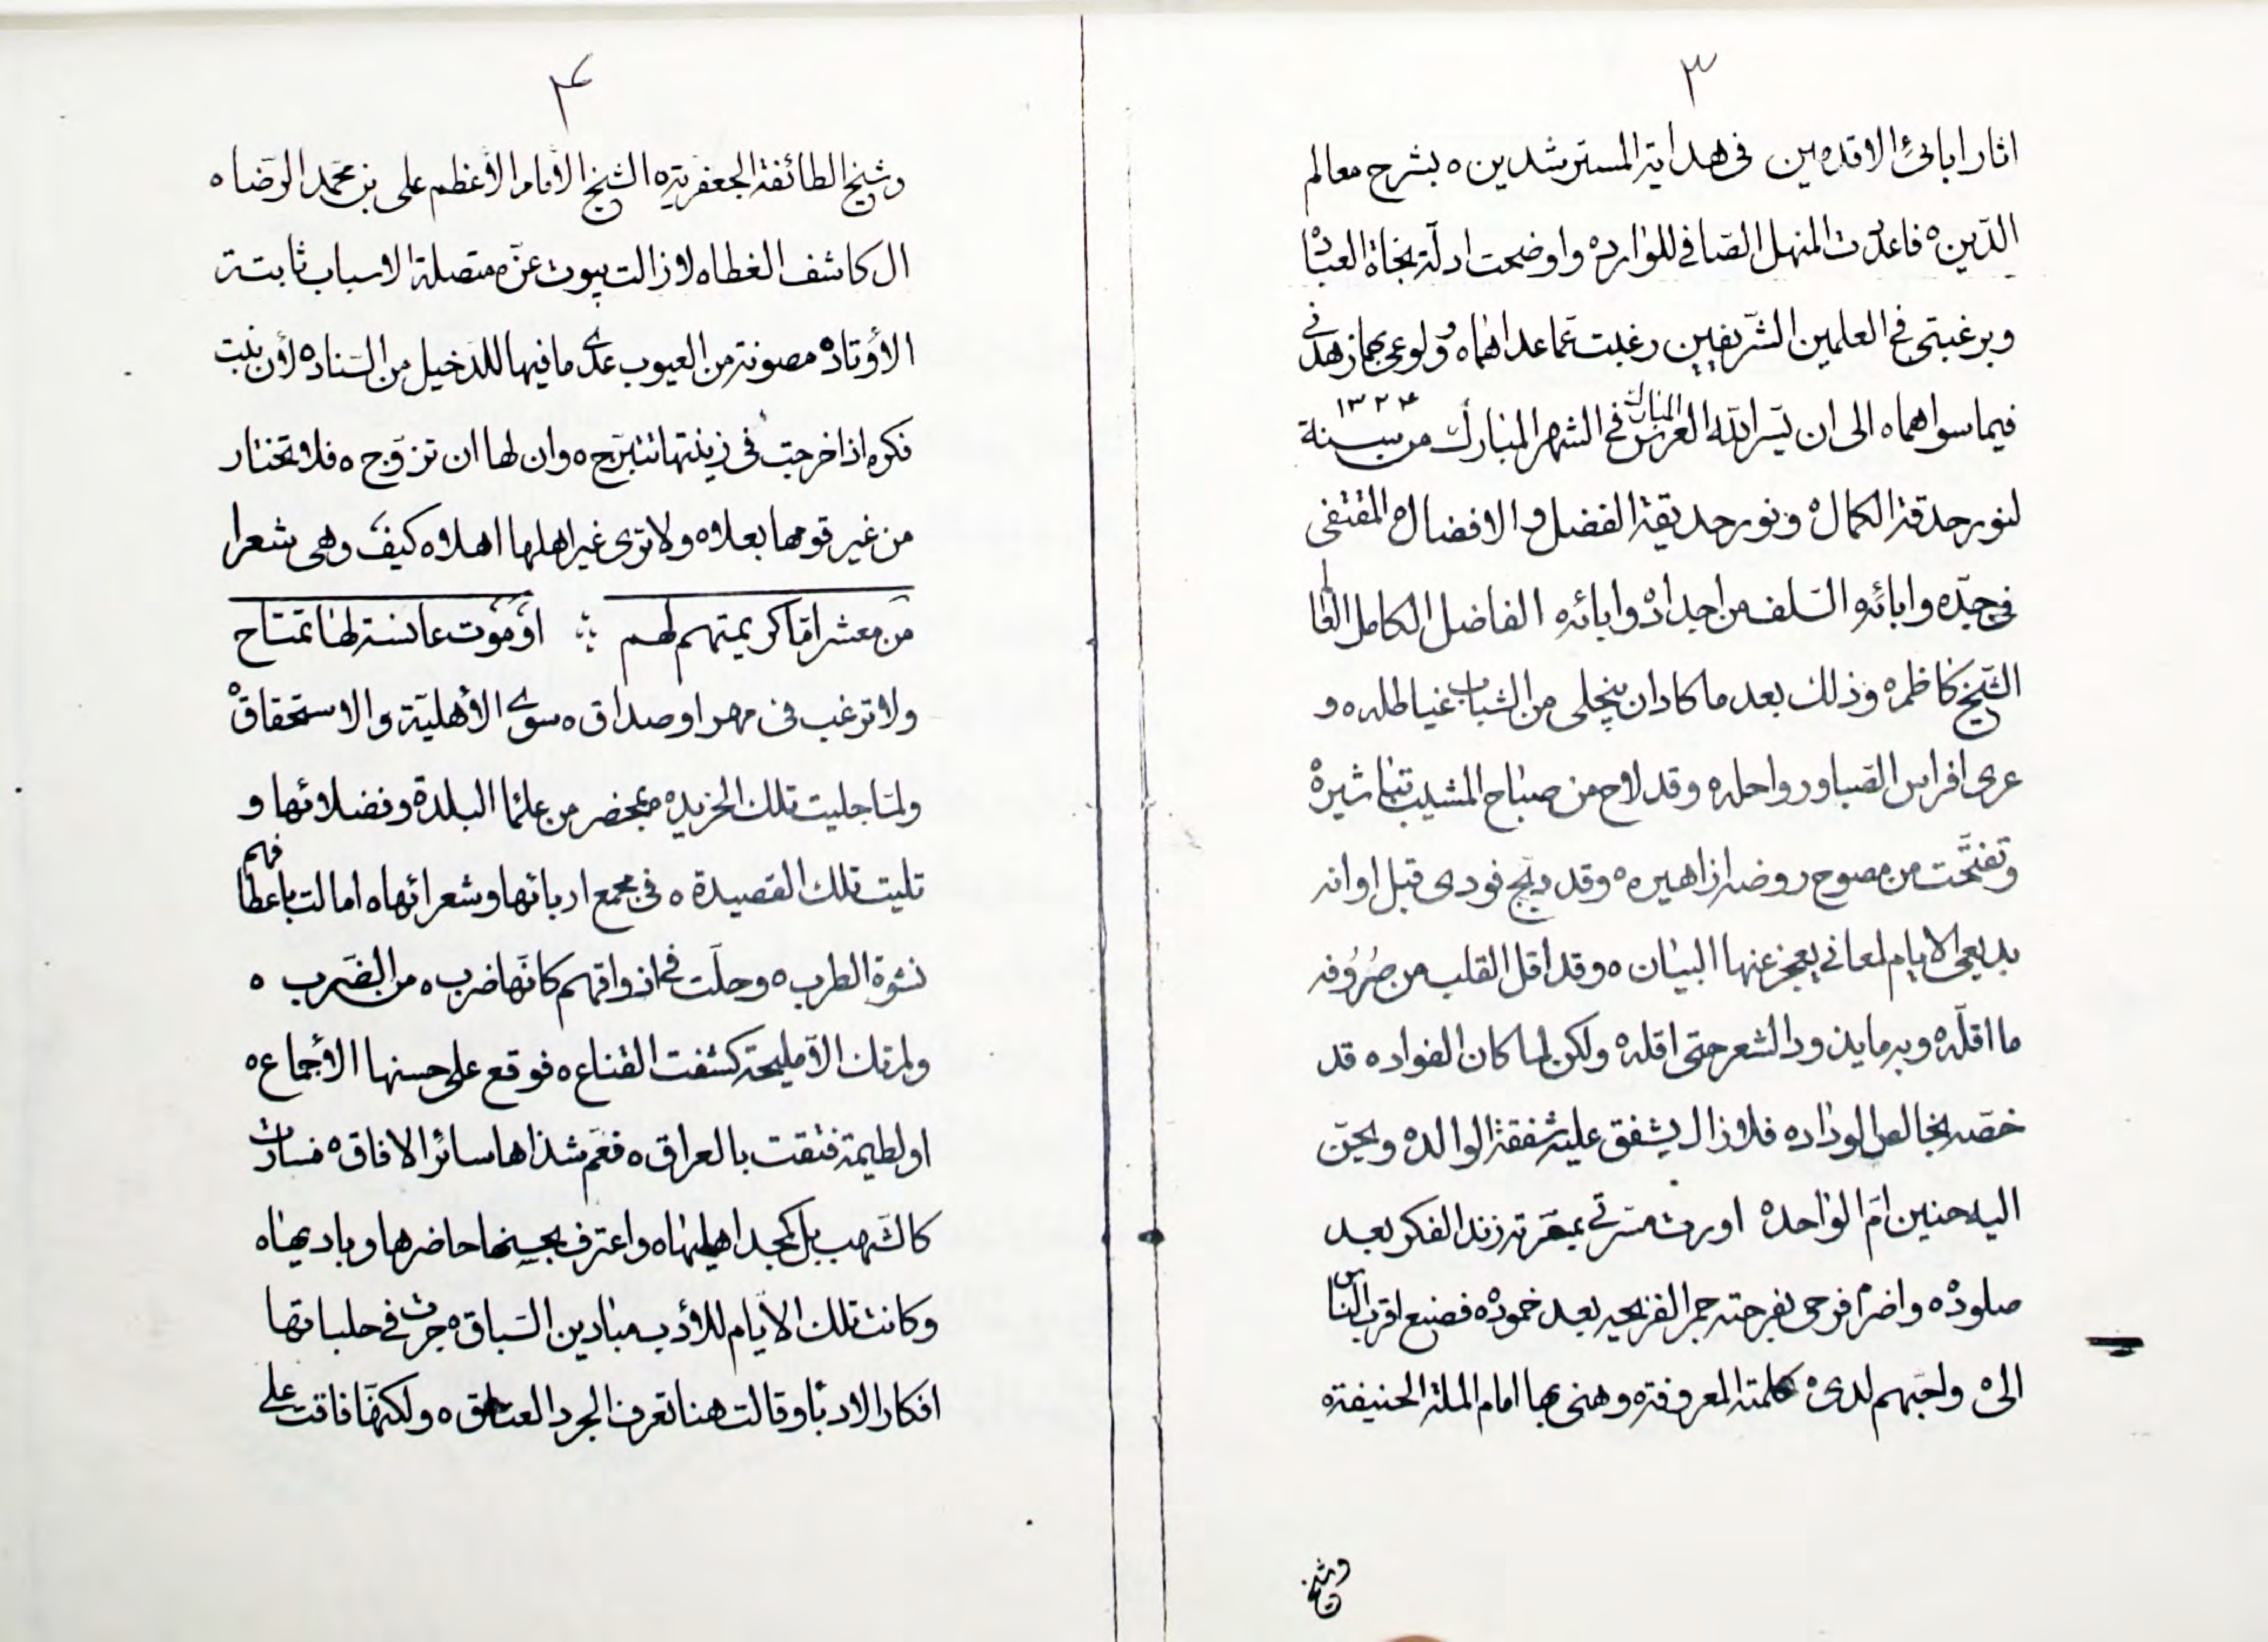 ٣
اثار ابائى الاقدمين فى هداية المسترشدين ٥ بشرح معالم
الدّين ٥ فاعدت المنهل الصّافى للوارد ٥ واوضحت ادلّة نجاة العباد
وبرغبتى فى العلمين الشّريفين رغبت عمّا عداهما ٥ وولوعى بهما زهدنى
١٣٢٤
فيما سواهما ٥ الى ان يسّر الله العرس المبارك فى الشهر المبارك من سنة
لنور حدقة الكمال ٥ ونور حديقة الفضل والافضال ٥ المقتفى
فى جدّه وابائه السّلف من اجداده وابائه الفاضل الكامل
الشّيخ كاظم ٥ وذلك بعد ما كاد ان ينجلى من الشباب غياطله ٥ و
عرى افراس الصّبا ورواحله ٥ وقد لاح من صباح المشيب تباشيره
وتفتّحت من مصوح روضه ازاهيره ٥ وقد دبّج فودى قبل اوانه
بديعى الايام لمعانى يعجز عنها البيان ٥ وقد اقل القلب من صُرُوفه
ما اقلّه ٥ وبه ما يذود الشعر حتى اقله ٥ ولكن لما كان الفواد ٥ قد
خصّه بخالص الوداد ٥ فلا زال يشفق عليه شفقة الوالد ٥ ويحنّ
اليه حنين امّ الواحد ٥ اورت مسرتى بمسرته زند الفكر بعد
صلوده ٥ واضرم فرحى بفرحته جمر القريحه بعد خموده ٥ فصنع اقرب النّاس
الى ٥ واحبّهم لدى ٥ كلمته المعروفة ٥ وهنى بها امام الملة الحنيفة ٥
وشيخ
٤
وشيخ الطائفة الجعفرية ٥ الشيخ الأمام الأعظم على بن محمّد الرّضا ٥
ال كاشف الغطا ٥ لا زالت بيوت عزّه متصلة الاسباب ثابتة
الأوتاد ٥ مصونة من العيوب عدى ما فيها للدخيل من السّناد ٥ لأن بنت
فكره اذا خرجت فى زينتها تتبرّج ٥ وان لها ان تزوّج ٥ فلا تختار
من غير قومها بعلا ٥ ولا ترى غير اهلها اهلا ٥ كيف وهى شعرا
من معشر امّا كريمتهم لهم ؞ او موت عانسة لها تمتاح
ولا ترغب فى مهر او صداق ٥ سوى الأهلية والاستحقاق ٥
ولمّا جليت تلك الخريده بمحضر من علما البلدة وفضلائها و
تليت تلك القصيدة ٥ فى مجمع ادبائها وشعرائها ٥ امالت باعطافهم
نشوة الطرب ٥ وحلّت فى اذواقهم كانّها ضرب ٥ من الضّرب ٥
ولم تك الّا مليحة كشفت القناع ٥ فوقع على حسنها الأجماع ٥
او لطيمة فتقت بالعراق ٥ فعّم شذاها سائر الافاق ٥ فسارت
كالشهب بل كمجد اهليها ٥ واعترف بحسنها حاضرها وباديها ٥
وكانت تلك الأيام للأدب ميادين السّباق ٥ جرت فى حلباتها
افكار الادبا وقالت هنا تعرف الجرد العتاق ٥ ولكنهّا فاقت على